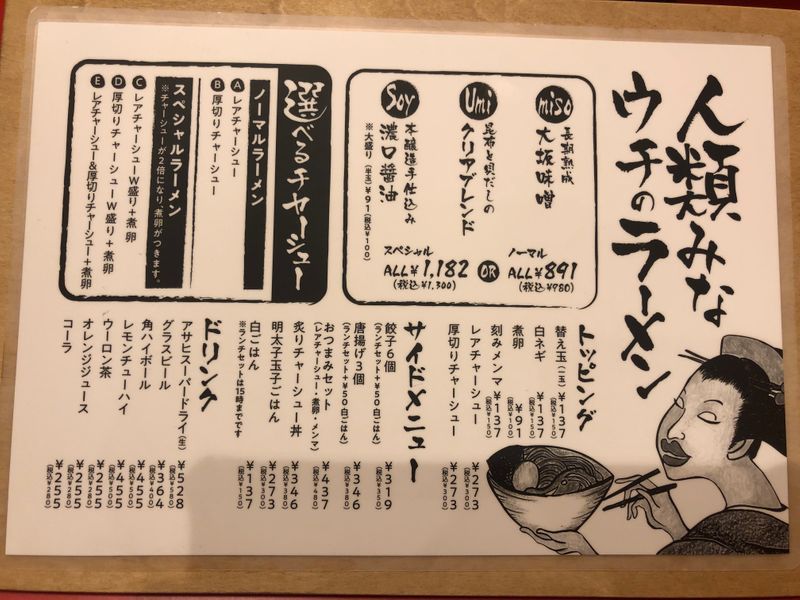 人類みな
ウチのラーメン
miso
長期熟成
大坂味噌
Umi
昆布と貝だしの
クリアブレンド
Soy
本醸造手仕込み
濃口醤油
※大盛り(半玉)¥91(税込¥100)
ノーマル
ALL¥891
(税込¥980)
OR
スペシャル
ALL¥1,182
(税込¥1,300)
選べるチャーシュー
ノーマルラーメン
A レアチャーシュー
B 厚切りチャーシュー
スペシャルラーメン
※チャーシューが2倍になり、煮卵がつきます。
C レアチャーシューW盛り+煮卵
D 厚切りチャーシューW盛り+煮卵
E レアチャーシュー&厚切りチャーシュー+煮卵
トッピング
替え玉(一玉) ¥137(税込¥150)
白ネギ ¥137(税込¥150)
煮卵 ¥91(税込¥100)
刻みメンマ ¥137(税込¥150)
レアチャーシュー ¥273(税込¥300)
厚切りチャーシュー ¥273(税込¥300)
サイドメニュー
餃子6個 ¥319(税込¥350)
(ランチセット+¥50白ごはん)
唐揚げ3個 ¥346(税込¥380)
(ランチセット+¥50白ごはん)
おつまみセット ¥437(税込¥480)
(レアチャーシュー・煮卵・メンマ)
炙りチャーシュー丼 ¥346(税込¥380)
明太子玉子ごはん ¥273(税込¥300)
白ごはん ¥137(税込¥150)
※ランチセットは15時までです
ドリンク
アサヒスーパードライ(生) ¥528(税込¥580)
グラスビール ¥364(税込¥400)
角ハイボール ¥455(税込¥500)
レモンチューハイ ¥455(税込¥500)
ウーロン茶 ¥255(税込¥280)
オレンジジュース ¥255(税込¥280)
コーラ ¥255(税込¥280)